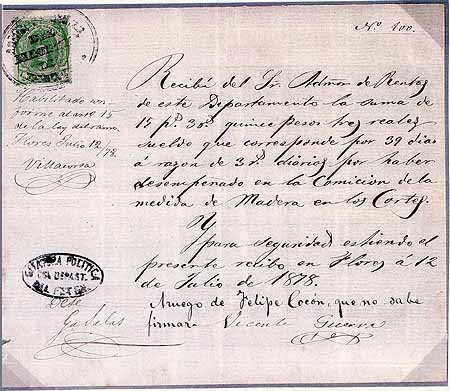 Nº 100.
Recibí del Sr. Admor de Rentas
de este Departamento la suma de
15 ps. 3 rs. quince pesos tres reales
sueldo que corresponde por 39 dias
á razon de 3 rs. diarios por haber
desempeñado en la Comicion de la
medida de Madera en los Cortes.
Y
para seguridad estiendo el
presente recibo en Flores á 12
de Julio de 1878.
Aruego de Felipe Cocón, que no sabe
firmar Vicente Guerra
Habilitado con-
forme al art 15
de la ley del ramo.
Flores Julio 12/78.
Villacorta
JEFATURA POLITICA
DEL DEPART.
DEL PETEN.